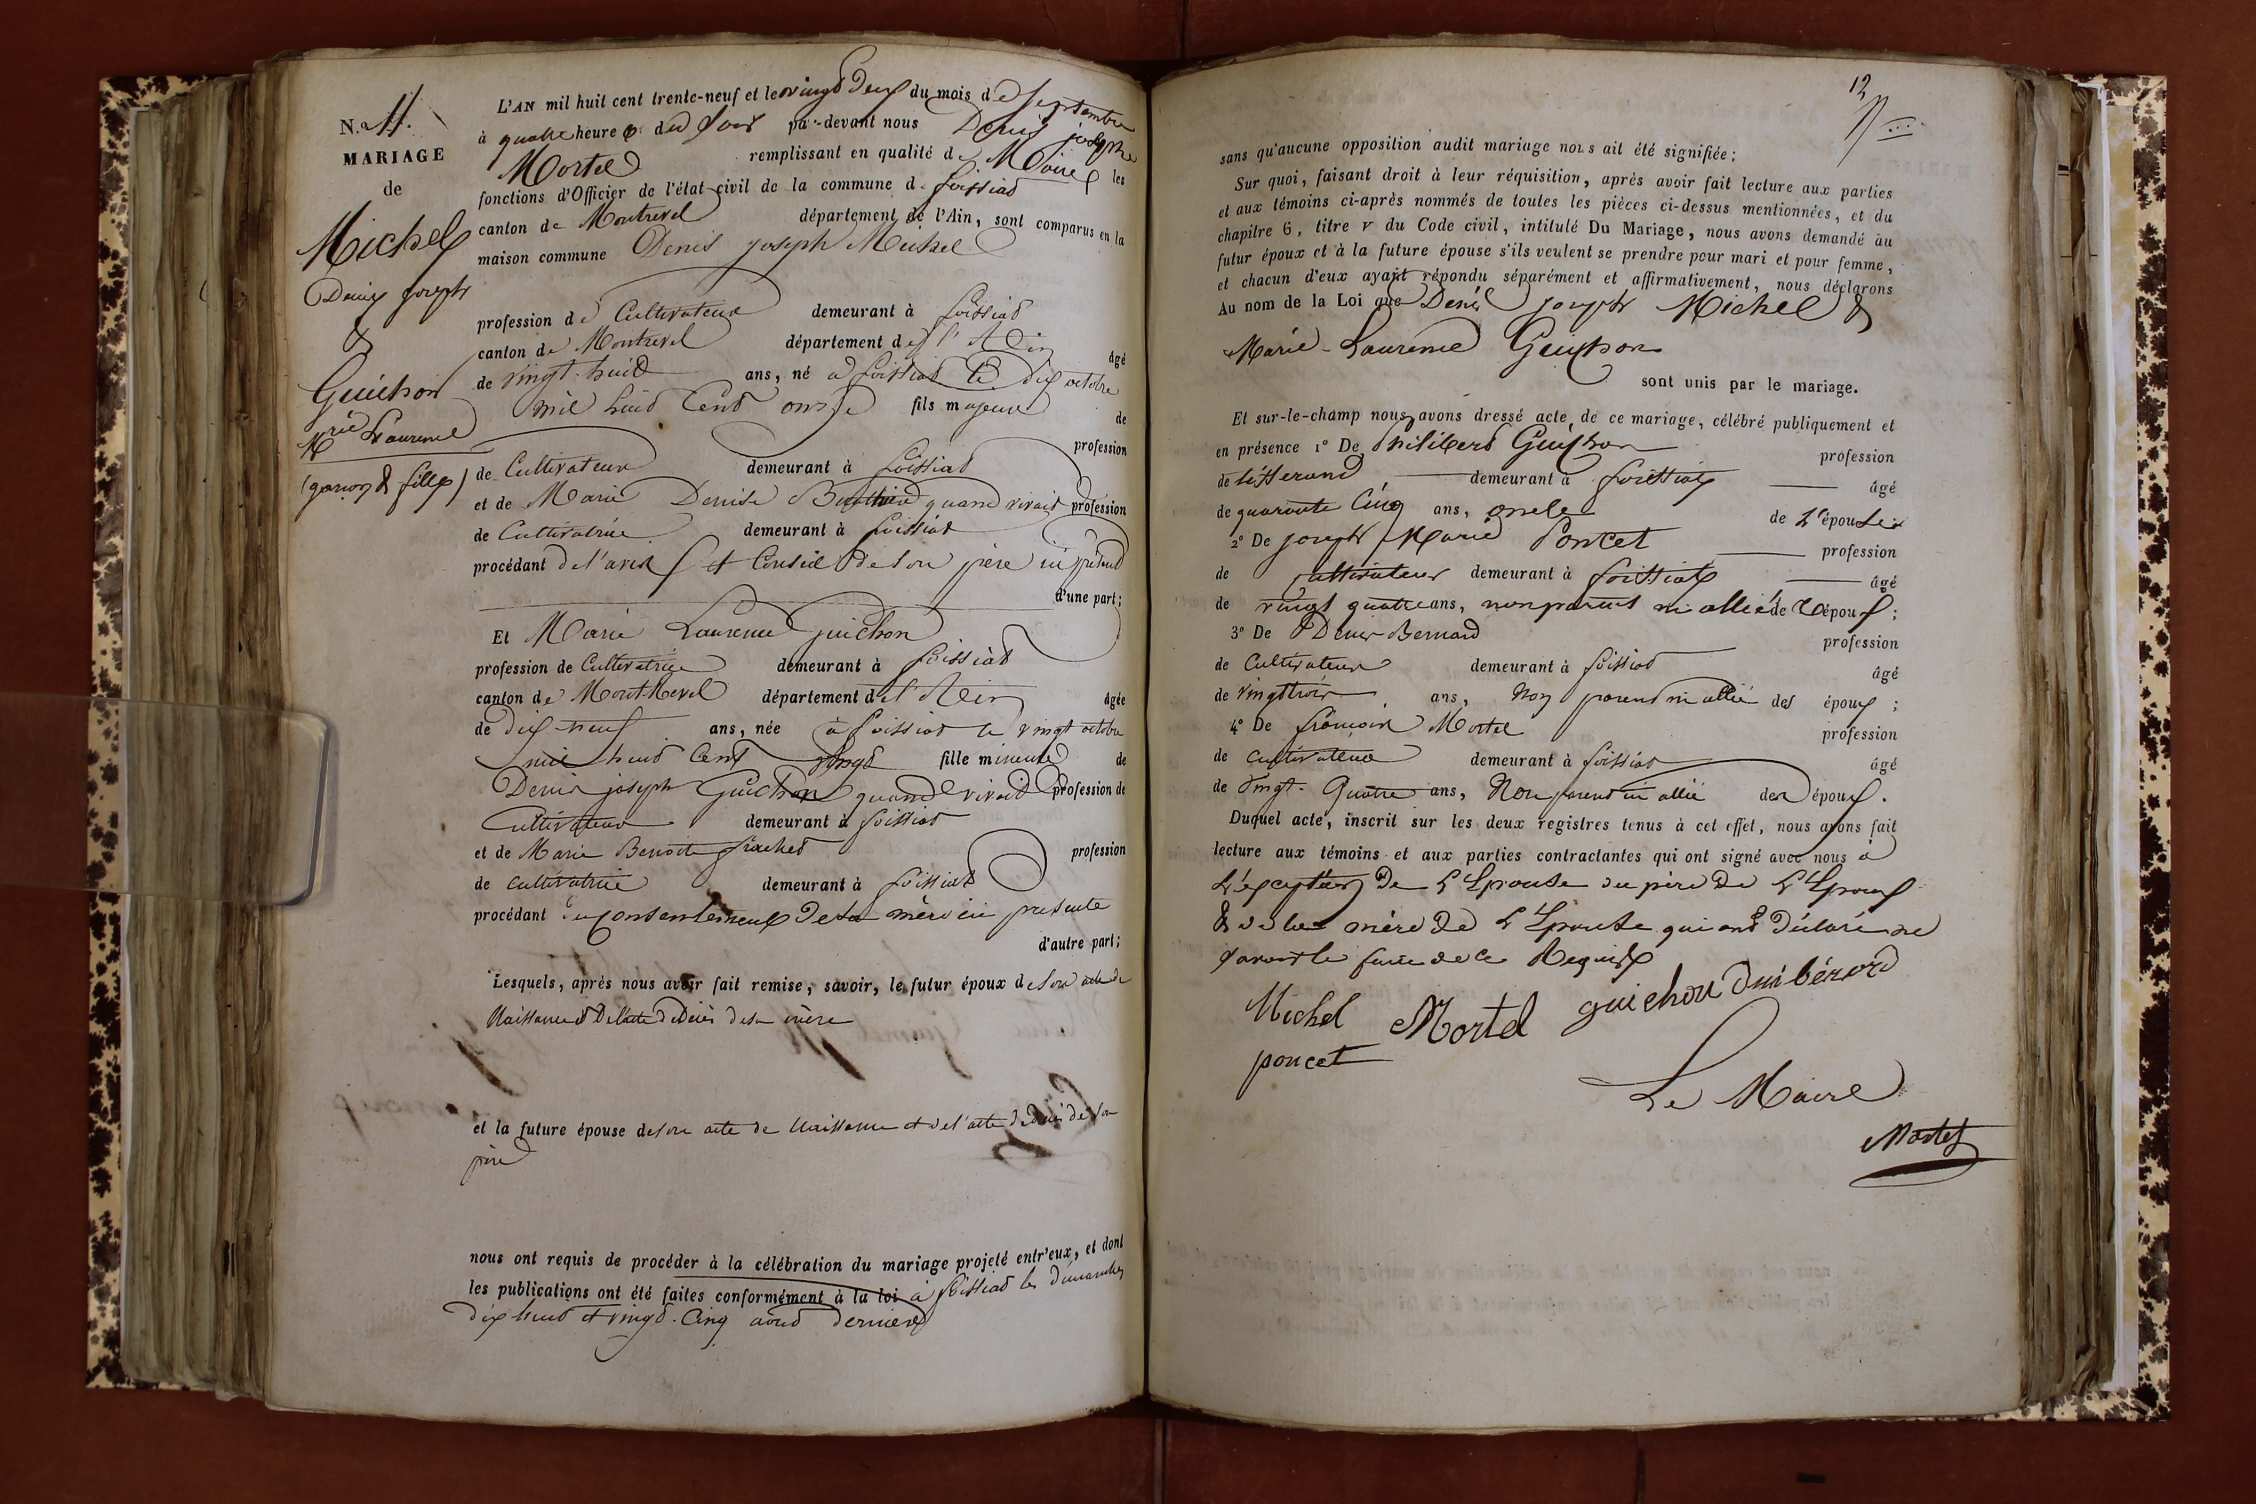 N.o 11.
MARIAGE
de
Michel
Denis Joseph
&
Guichon
Mrie Laurence
(garçon & fille)
L'AN mil huit cent trente-neuf et le vingt deux du mois de Septembre
à quatre heures du soir par-devant nous Denis joseph
Mortel remplissant en qualité de Maire les
fonctions d'Officier de l'état civil de la commune de foissiat
canton de Montrevel département de l'Ain, sont comparus en la
maison commune Denis joseph Michel
profession de Cultivateur demeurant à foissiat
canton de Montrevel département de l'Ain âgé
de vingt-huit ans, né à foissiat le dix octobre
mil huit cent onze fils majeur de
profession
de Cultivateur demeurant à foissiat
et de Marie Denise quand vivait profession
de Cultivatrice demeurant à foissiat
procédant de l'avis et Conseil de son père ici présent
d'une part;
Et Marie Laurence Guichon
profession de Cultivatrice demeurant à foissiat
canton de Mont-Revel département de l'Ain âgée
de dix-neuf ans, née à foissiat le vingt octobre
mil huit cent vingt fille mineure de
Denis joseph Guichon quand vivait profession de
Cultivateur demeurant à foissiat
et de Marie Benoite profession
de cultivatrice demeurant à foissiat
procédant du consentement de sa mère ici présente
d'autre part;
Lesquels, après nous avoir fait remise, savoir, le futur époux de son acte de
Naissance & De l'acte de Décès de sa mère
et la future épouse de son acte de Naissance et de l'acte de Décès de son
père
nous ont requis de procéder à la célébration du mariage projeté entr'eux, et dont
les publications ont été faites conformément à la loi à foissiat les dimanches
dix huit et vingt-Cinq aout dernier
12
sans qu'aucune opposition audit mariage nous ait été signifiée;
Sur quoi, faisant droit à leur réquisition, après avoir fait lecture aux parties
et aux témoins ci-après nommés de toutes les pièces ci-dessus mentionnées, et du
chapitre 6, titre V du Code civil, intitulé Du Mariage, nous avons demandé au
futur époux et à la future épouse s'ils veulent se prendre pour mari et pour femme,
et chacun d'eux ayant répondu séparément et affirmativement, nous déclarons
Au nom de la Loi que Denis joseph Michel &
Marie-Laurence Guichon
sont unis par le mariage.
Et sur-le-champ nous avons dressé acte de ce mariage, célébré publiquement et
en présence 1° De Philibert Guichon profession
de tisserand demeurant à foissiat âgé
de quarante Cinq ans, oncle de L'épouse
2° De joseph Marie Poncet profession
de cultivateur demeurant à foissiat âgé
de vingt quatre ans, non parent ni allié des époux;
3° De Denis Bernard profession
de Cultivateur demeurant à foissiat âgé
de vingt trois ans, Non parent ni allié des époux;
4° De françois Mortel profession
de cultivateur demeurant à foissiat âgé
de Vingt-Quatre ans, Non parent ni allié des époux.
Duquel acte, inscrit sur les deux registres tenus à cet effet, nous avons fait
lecture aux témoins et aux parties contractantes qui ont signé avec nous à
L'exception De L'Epouse du père De L'Epoux
& de la mère De L'Epouse qui ont Déclaré ne
savoir le faire de ce Requis
Michel Mortel guichon
poncet
Le Maire
Mortel